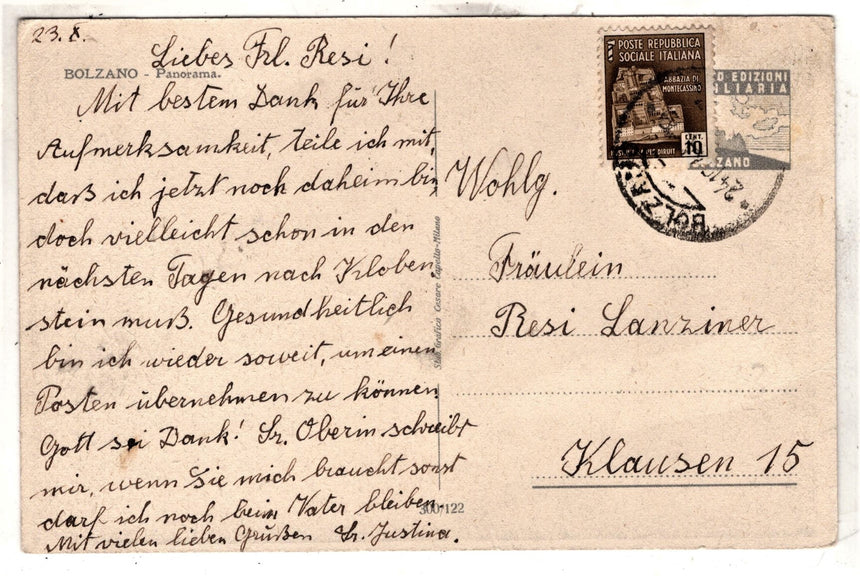 23. X.
Liebes Frl. Resi!
BOLZANO - Panorama.
Mit bestem Dank für Ihre
Aufmerksamkeit, teile ich mit,
daß ich jetzt noch daheim bin,
doch vielleicht schon in den
nächsten Tagen nach Kloben
stein muß. Gesundheitlich
bin ich wieder soweit, um einen
Posten übernehmen zu können
Gott sei Dank! Sr. Oberin schreibt
mir, wenn Sie mich braucht sonst
darf ich noch beim Vater bleiben.
Mit vielen lieben Grüßen Sr. Justina.
Stab. Grafico Cesare Capello - Milano
300-122
POSTE REPUBBLICA
SOCIALE ITALIANA
ABBAZIA DI
MONTECASSINO
CENT.
10
EDIZIONI
BOLZANO
Wohlg.
Fräulein
Resi Lanziner
Klausen 15